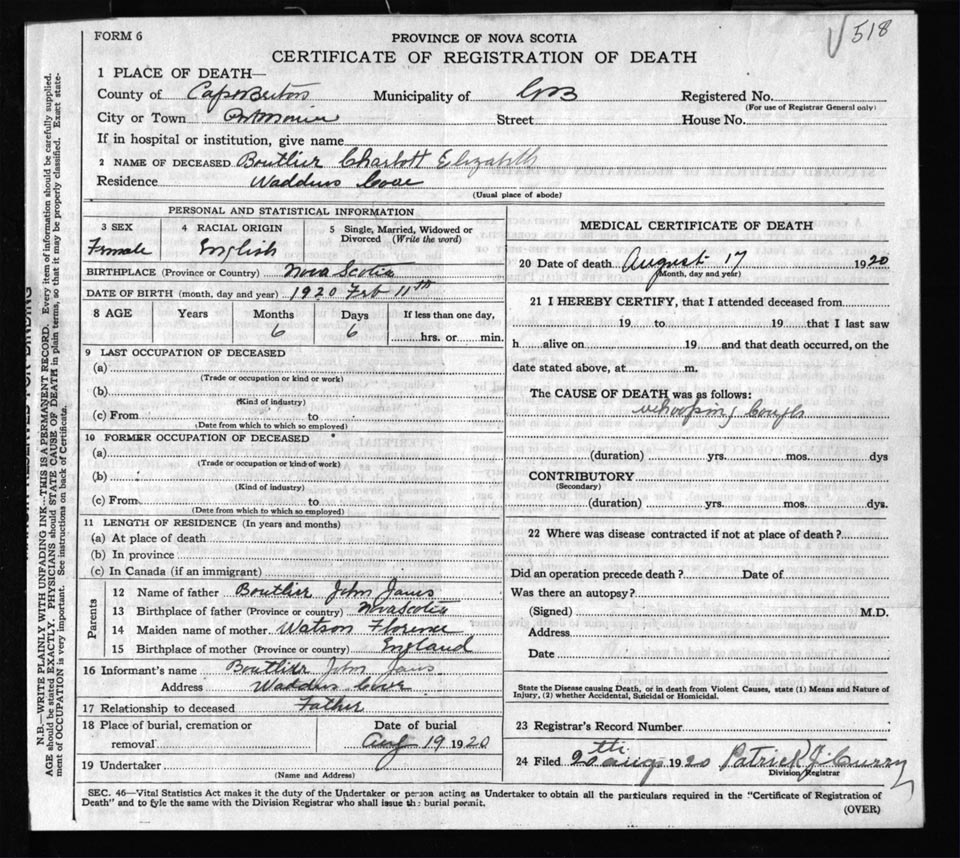 518
FORM 6
PROVINCE OF NOVA SCOTIA
CERTIFICATE OF REGISTRATION OF DEATH
1 PLACE OF DEATH—
County of Cape Breton Municipality of CB Registered No.
(For use of Registrar General only)
City or Town Street House No.
If in hospital or institution, give name
2 NAME OF DECEASED Boutlier Charlott Elizabeth
Residence Waddens Cove
(Usual place of abode)
PERSONAL AND STATISTICAL INFORMATION
3 SEX Female
4 RACIAL ORIGIN English
5 Single, Married, Widowed or Divorced (Write the word)
BIRTHPLACE (Province or Country) Nova Scotia
DATE OF BIRTH (month, day and year) 1920 Feb 11th
8 AGE Years Months Days If less than one day,
6 6 hrs. or min.
9 LAST OCCUPATION OF DECEASED
(a)
(Trade or occupation or kind or work)
(b)
(Kind of industry)
(c) From to
(Date from which to which so employed)
10 FORMER OCCUPATION OF DECEASED
(a)
(Trade or occupation or kind of work)
(b)
(Kind of industry)
(c) From to
(Date from which to which so employed)
11 LENGTH OF RESIDENCE (In years and months)
(a) At place of death
(b) In province
(c) In Canada (if an immigrant)
Parents
12 Name of father Boutlier John James
13 Birthplace of father (Province or country) Nova Scotia
14 Maiden name of mother Watson Florence
15 Birthplace of mother (Province or country) England
16 Informant's name Boutlier John Jams
Address Waddens Cove
17 Relationship to deceased Father
18 Place of burial, cremation or removal
Date of burial
Aug 19 1920
19 Undertaker
(Name and Address)
MEDICAL CERTIFICATE OF DEATH
20 Date of death August 17 1920
(Month, day and year)
21 I HEREBY CERTIFY, that I attended deceased from
19 to 19 that I last saw
h alive on 19 and that death occurred, on the
date stated above, at m.
The CAUSE OF DEATH was as follows:
whooping Cough
(duration) yrs. mos. dys
CONTRIBUTORY
(Secondary)
(duration) yrs. mos. dys.
22 Where was disease contracted if not at place of death?
Did an operation precede death? Date of
Was there an autopsy?
(Signed) M.D.
Address
Date
State the Disease causing Death, or in death from Violent Causes, state (1) Means and Nature of
Injury, (2) whether Accidental, Suicidal or Homicidal.
23 Registrar's Record Number
24 Filed 20th aug 1920 Patrick J. Curry
Division Registrar
SEC. 46—Vital Statistics Act makes it the duty of the Undertaker or person acting as Undertaker to obtain all the particulars required in the "Certificate of Registration of
Death" and to fyle the same with the Division Registrar who shall issue the burial permit.
(OVER)
N.B.—WRITE PLAINLY WITH UNFADING INK—THIS IS A PERMANENT RECORD. Every item of information should be carefully supplied.
AGE should be stated EXACTLY. PHYSICIANS should STATE CAUSE OF DEATH in plain terms, so that it may be properly classified. Exact state-
ment of OCCUPATION is very important. See instructions on back of Certificate.